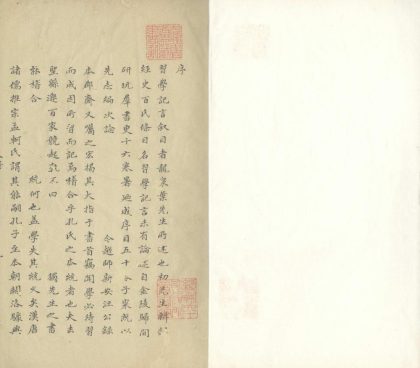 序
習學記言敘目者龍泉葉先生所述也初先生輯錄
經史百氏條目名習學記言未有論述自金陵歸間
研玩群書更十六寒暑迺成序目五十卷子寀既以
先志編次論 今越帥新安汪公鋟
本郡齋又屬之宏揭其大指于書首竊聞學必待習
而成因所習而記焉稽合乎孔氏之本統者也夫去
聖緜邈百家競起孰不曰 獨先生之書
能稽合 統何也蓋學失其統久矣漢唐
諸儒推宗孟軻氏謂其能嗣孔子至本朝關洛驟興